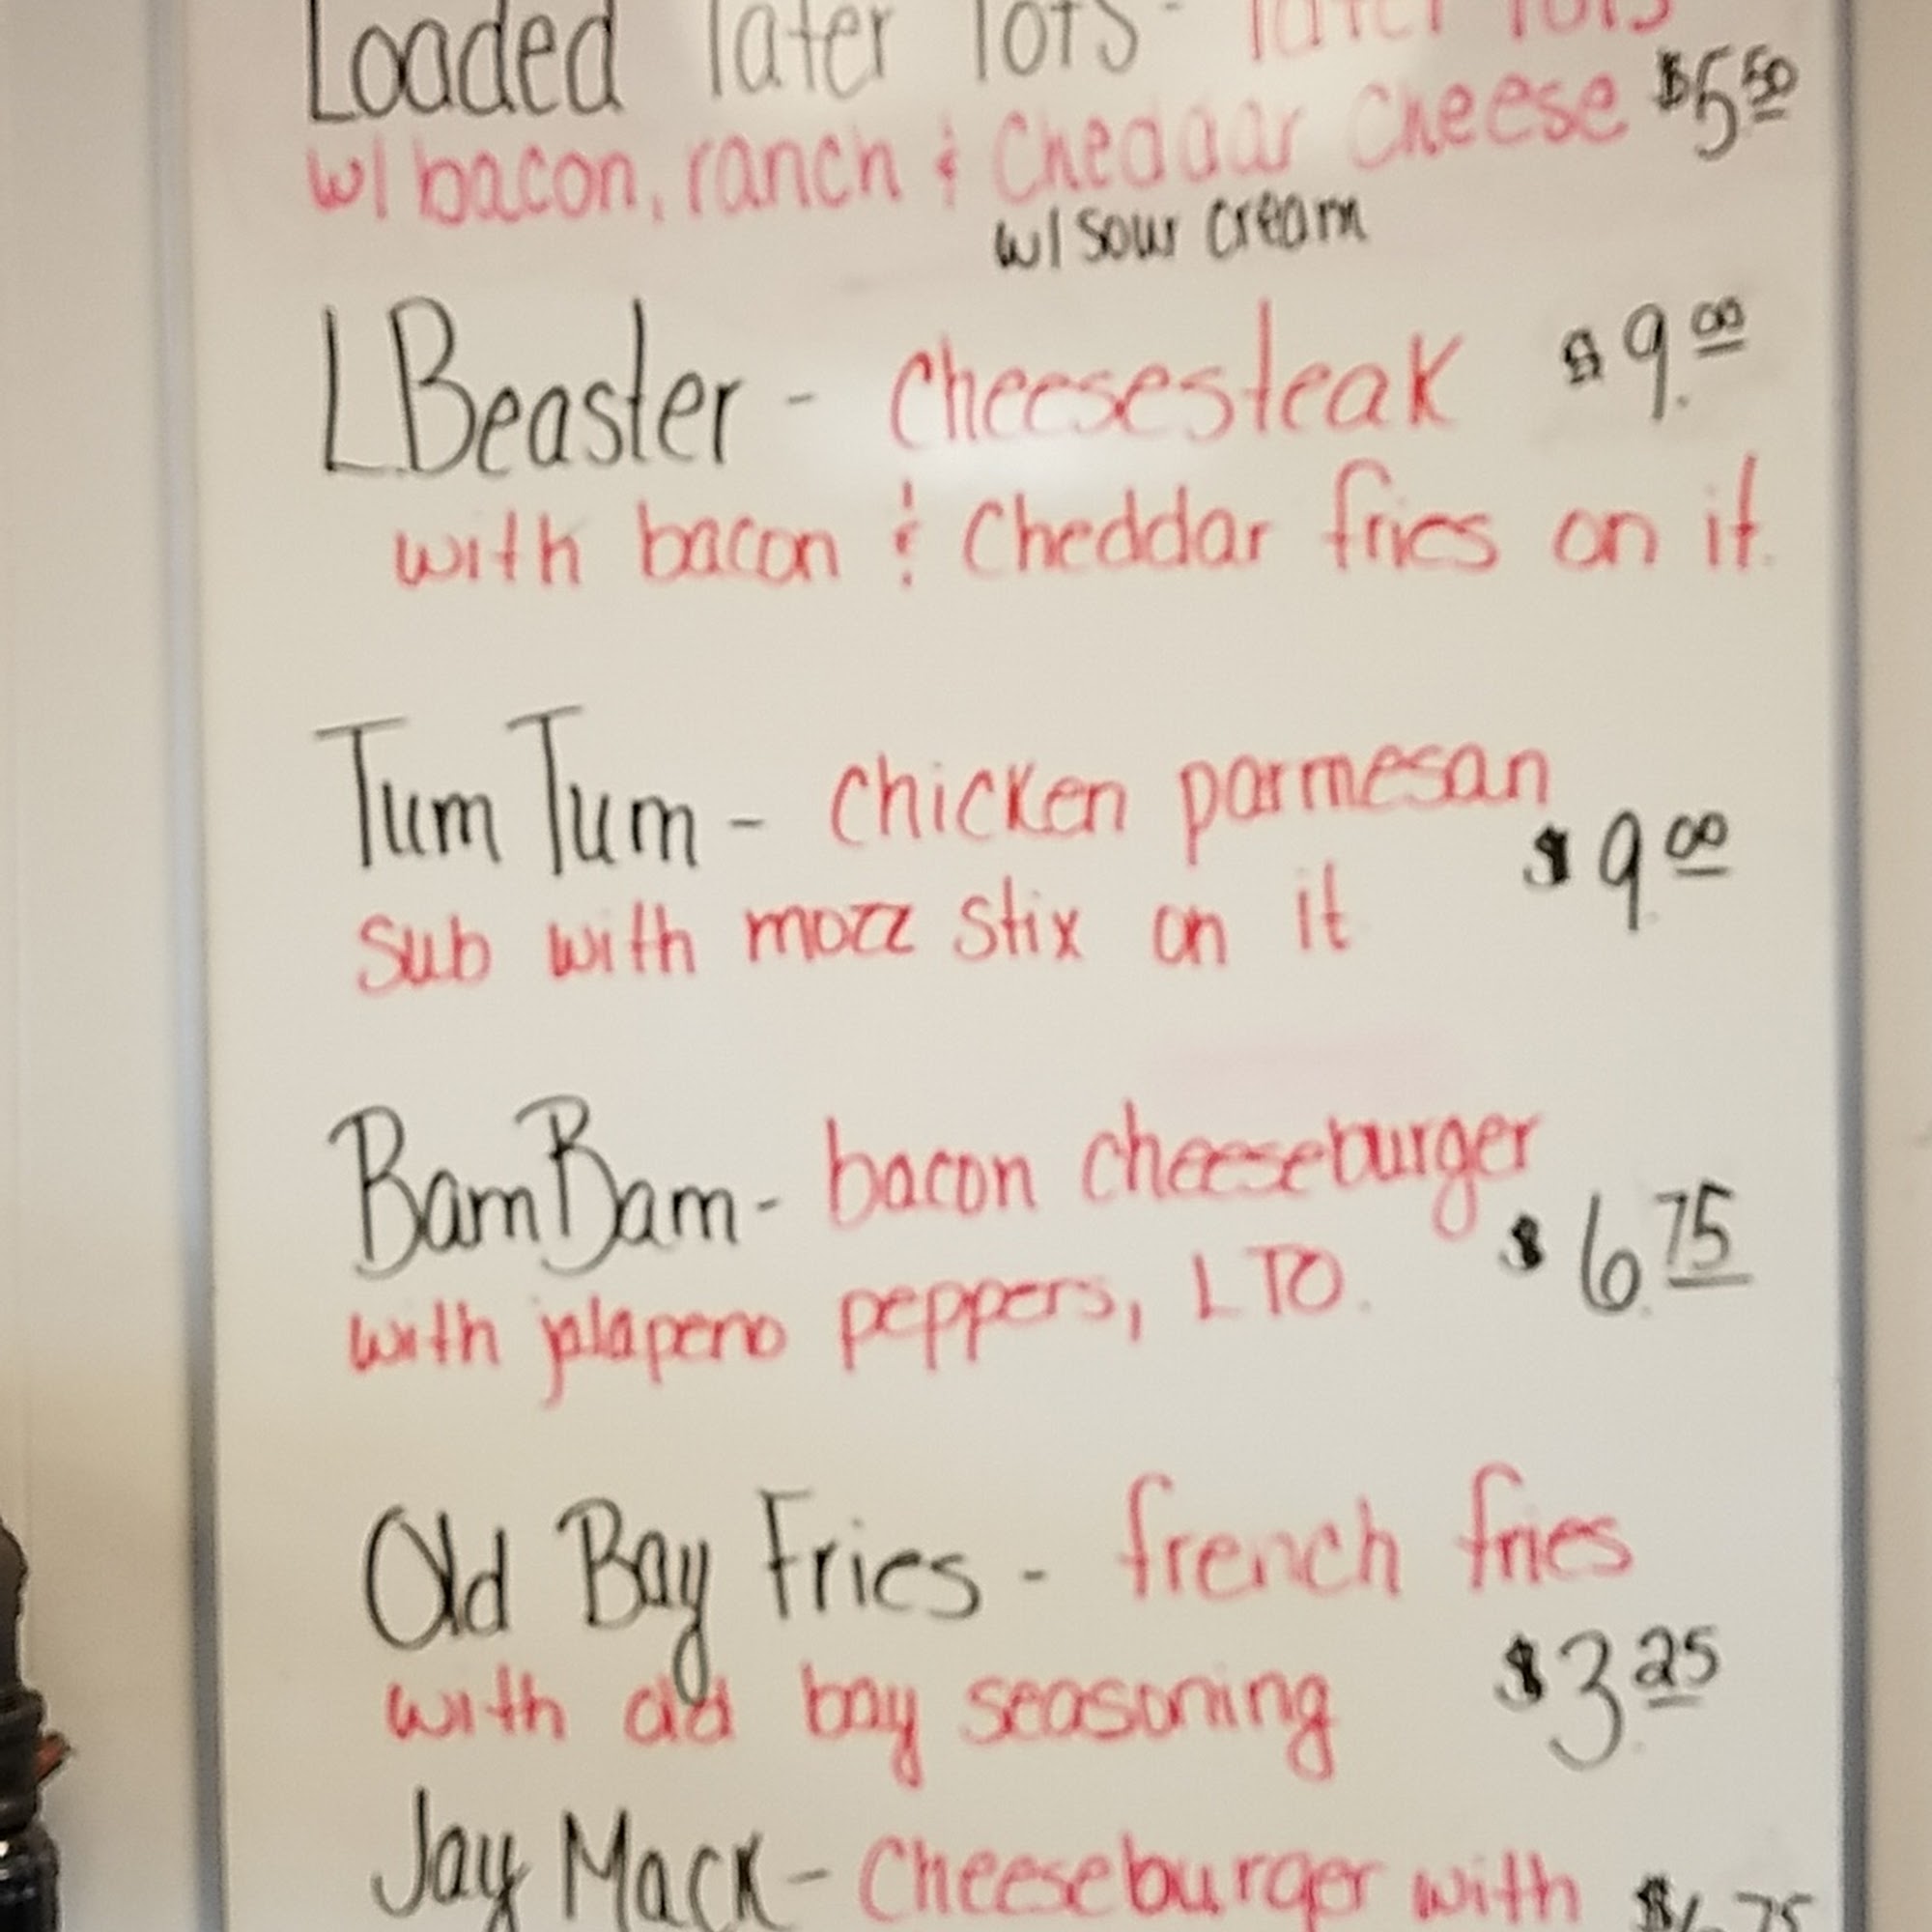 Loaded Tater Tots - Tater Tots
w/ bacon, ranch & Cheddar Cheese $5.50
w/ Sour Cream
L Beaster - Cheesesteak $9.00
with bacon & Cheddar fries on it.
Tum Tum - Chicken parmesan
Sub with mozz Stix on it $9.00
Bam Bam - bacon cheeseburger
with jalapeno peppers, LTO. $6.75
Old Bay Fries - french fries
with old bay seasoning $3.25
Jay Mack - Cheeseburger with $6.75